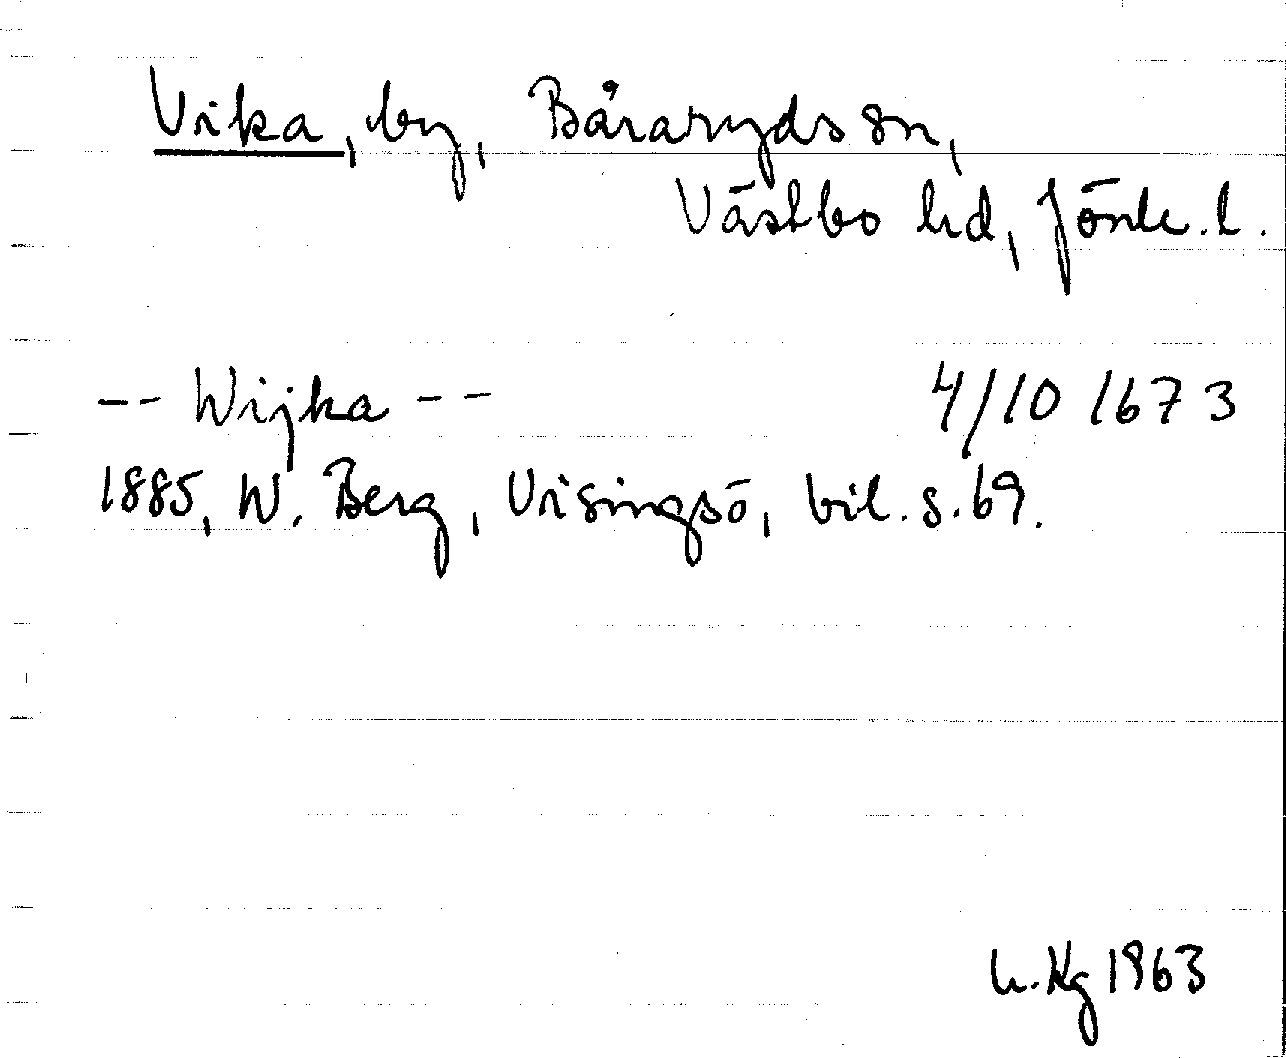 Vika, by, Båraryds sn,
Västbo hd, Jönk. l.
-- Wijka -- 4/10 1673
1885, W. Berg, Visingsö, bil. s. 69.
h. Kg 1963